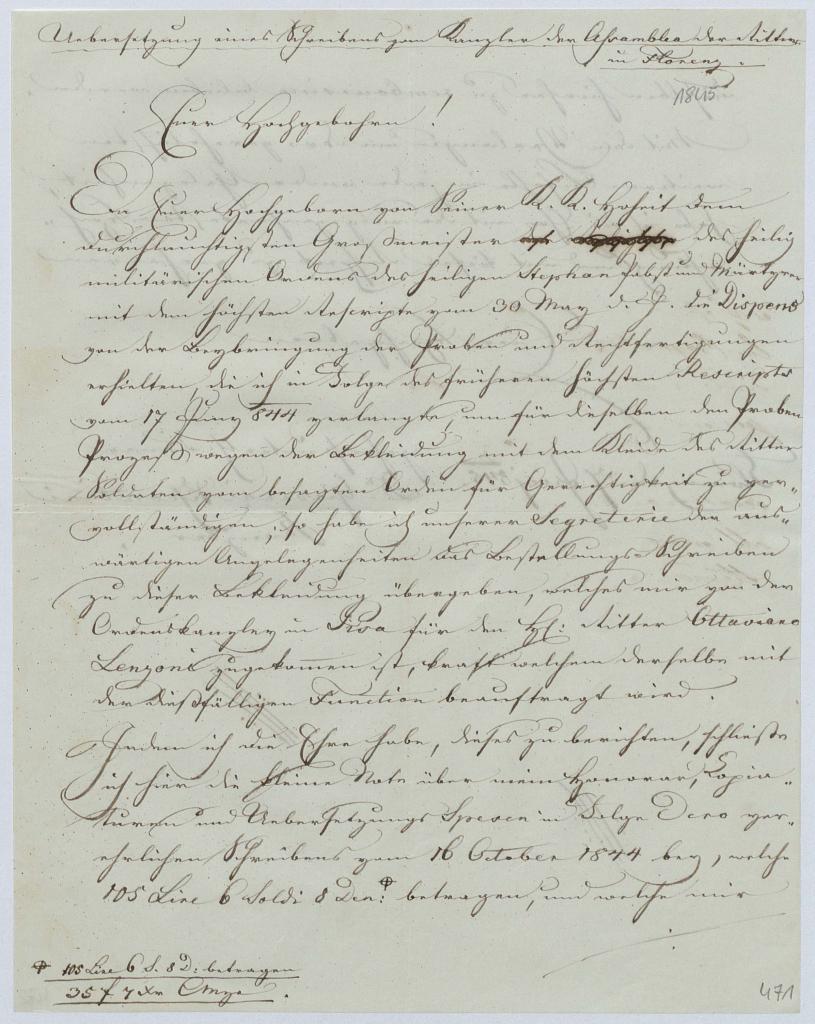 Uebersetzung eines Schreibens vom Kanzler der Assamblea der Ritter
in Florenz.
1845
Euer Hochgebohrn!
Da Euer Hochgeborn von Seiner K. K. Hoheit dem
durchlauchtigsten Großmeister des heilig
militärischen Ordens des heiligen Stephan Pabst und Märtyrer
mit dem höchsten Rescripte vom 30 May d. J. die Dispens
von der Beybringung der Proben und Rechtfertigungen
erhielten, die ich in Folge des früheren höchsten Rescripts
vom 17 Juny 844 verlangte, um für dieselben den Proben
Prozeß wegen der Bekleidung mit dem Kleide des Ritter
Soldaten vom besagten Orden für Gerechtigkeit zu ver-
vollständigen; so habe ich unserer Segreterie der aus-
wärtigen Angelegenheiten das Bestallungs-Schreiben
zu dieser Bekleidung übergeben, welches mir von der
Ordenskanzley in Pisa für den H: Ritter Ottaviano
Lenzoni zugekommen ist, kraft welchem derselbe mit
der dießfälligen Function beauftragt wird.
Indem ich die Ehre habe, dieses zu berichten, schließe
ich hier die kleine Note über mein Honorar, Copia-
turen und Uebersetzungs Spesen in Folge Dero ver-
ehrlichen Schreibens vom 16 October 1844 bey, welche
105 Lire 6 Soldi 8 Den: betragen, und welche mir
105 Lire 6 S. 8 D: betragen
35 f 7 xr Cmze.
471